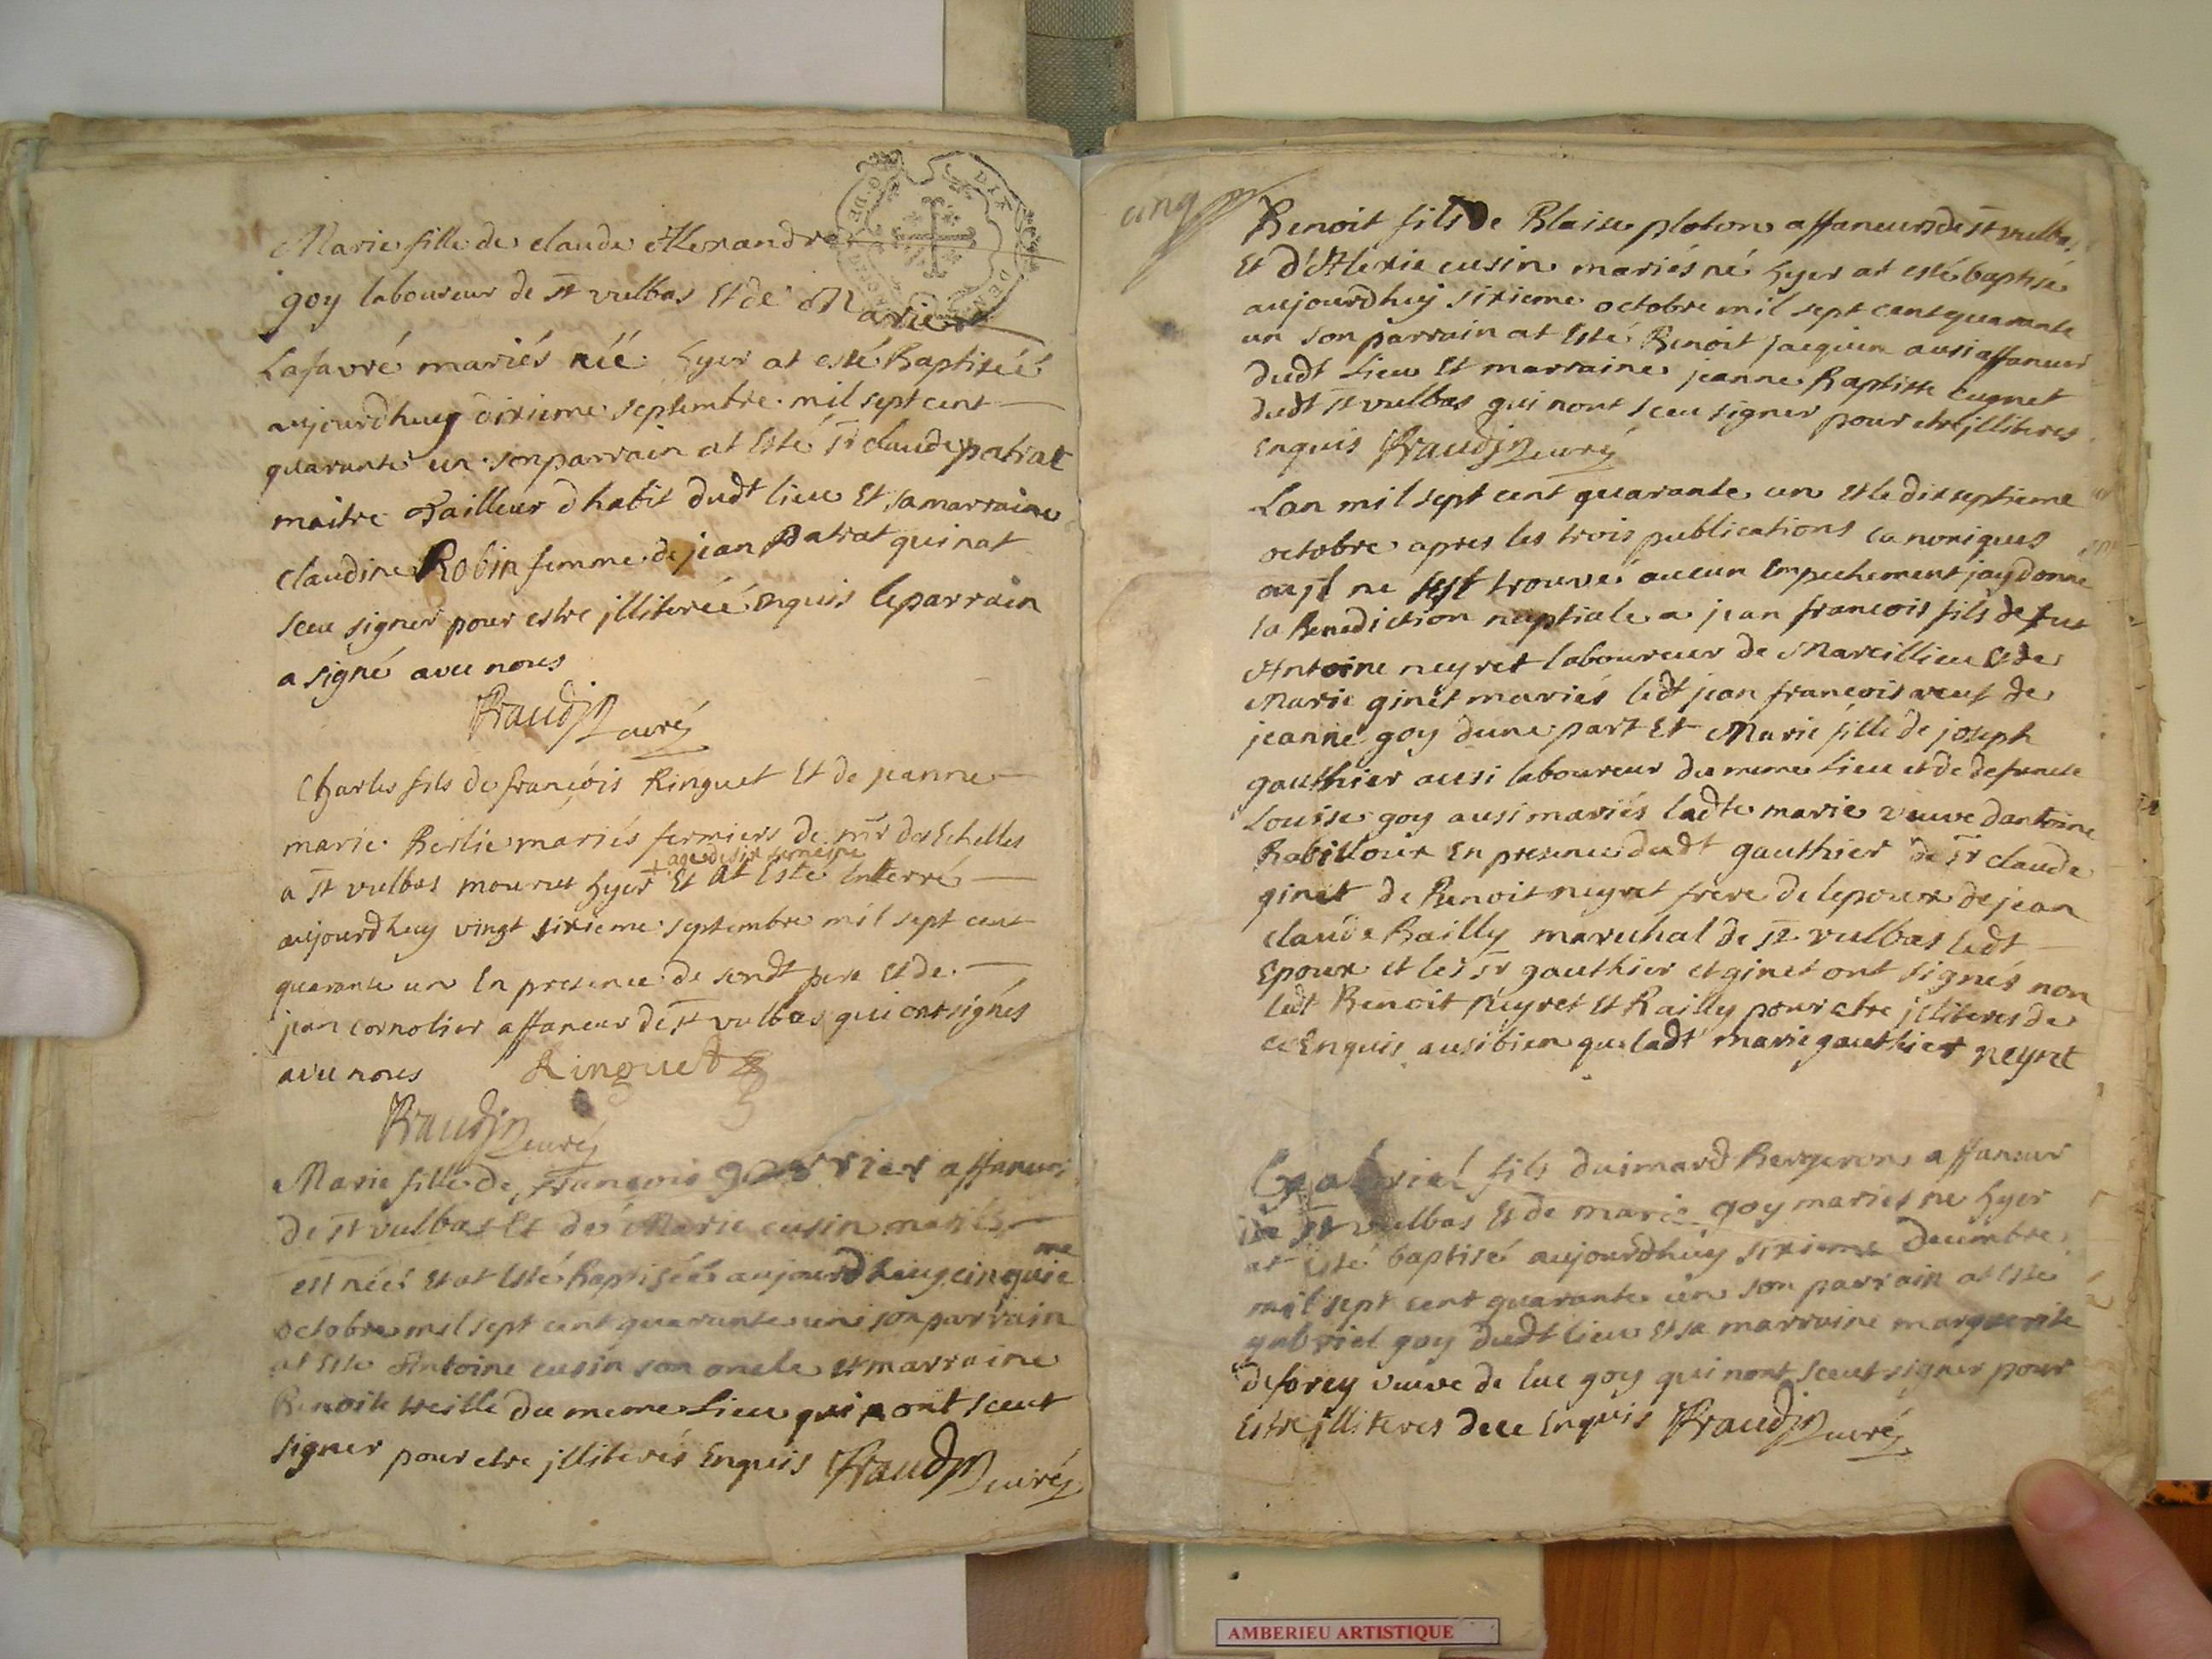 Marie fille de claude Alexandre
goy laboureur de st vulbas Et de Marie
Lafavré mariés néé hyer at esté Baptiséé
aujourdhuy dixieme septembre mil sept cent
quarante un son parrain at Esté sr claude patrat
maitre Tailleur dhabit dudt lieu Et sa marraine
claudine Robin femme de jean Patrat qui nat
sceu signer pour estre jlliteréé Enquis le parrain
a signé avec nous
curé
Charles fils de françois Ringuet Et de jeanne
marie Berlie mariés fermiers de mr des Echelles
agé de six semeine
a st vulbas mourut hyer Et at Esté Enterré
aujourdhuy vingt sixieme septembre mil sept cent
quarante un En presence de sondt pere Et de
jean cornolier affaneur de st vulbas qui ont signés
avec nous Ringuet
curé
Marie fille de françois affaneur
de st vulbas Et de Marie cusin mariés
est néé Et at Esté Baptiséé aujourdhuy cinquie
me
octobre mil sept cent quarante un son parrain
at Esté Antoine cusin son oncle et marraine
Benoite treille du meme Lieu qui nont sceut
signer pour etre jlliterés Enquis curé
cinq
Benoit fils de Blaise ploton affaneur de st vulbas
Et d'Alexie cusin mariés né hyer at esté baptisé
aujourdhuy sixieme octobre mil sept cent quarante
un son parrain at Esté Benoit jacquin ausi affaneur
dudt Lieu Et marraine jeanne Baptiste Cugnet
dudt st vulbas qui nont sceu signer pour etre jlliteres
Enquis curé
Lan mil sept cent quarante un et le dixseptieme
octobre apres les trois publications canoniques
ou jl ne sest trouvé aucun Empechement jay donné
la Benediction nuptiale a jean françois fils de fut
Antoine neyret laboureur de Marcillieu Et de
Marie ginet mariés ledt jean françois veuf de
jeanne goy dune part Et Marie fille de joseph
gauthier ausi laboureur du meme Lieu et de defuncte
Louise goy ausi mariés ladte marie veuve dantoine
Rabilloux En presence dudt gauthier de sr claude
ginet de Benoit neyret frere de lepoux de jean
claude Bailly marechal de st vulbas ledt
Epoux et les sr gauthier et ginet ont signés non
ledt Benoit Neyret Et Bailly pour etre jlliteres de
ce Enquis ausi bien que ladt marie gauthier neyret
Gabriel fils duimard Bergeron affaneur
de st vulbas Et de marie goy mariés ne hyer
at esté baptisé aujourdhuy sixieme decembre
mil sept cent quarante un son parrain at Esté
gabriel goy dudt lieu et sa marraine marguerite
deforey veuve de luc goy qui nont sceut signer pour
Estre jlliteres de ce Enquis curé
AMBERIEU ARTISTIQUE